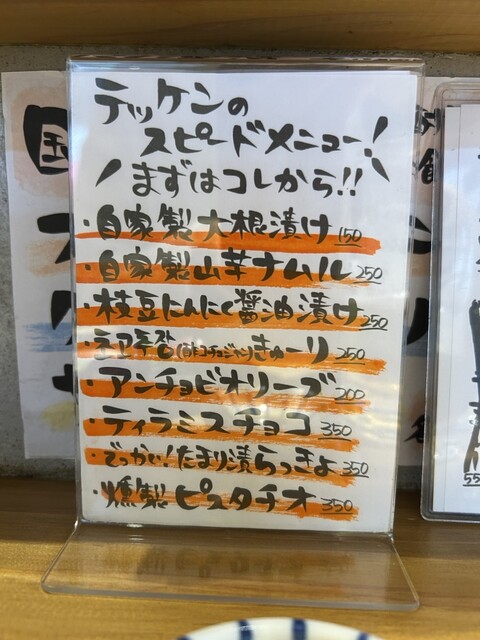 テッケンの
スピードメニュー！
まずはコレから!!
・自家製大根漬け 150
・自家製山芋ナムル 250
・枝豆にんにく醤油漬け 250
(白トコチュジャン)きゅーり 250
・アンチョビオリーブ 200
・ティラミスチョコ 350
・でっかい！たまり漬らっきょ 350
・燻製ピスタチオ 350
国
55